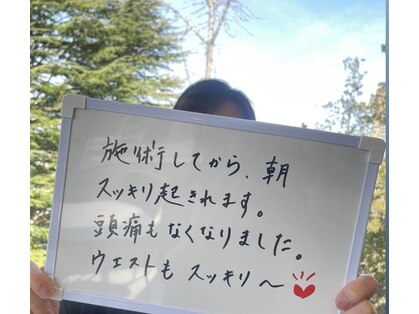 施術してから、朝
スッキリ起きれます。
頭痛もなくなりました。
ウエストも スッキリ〜